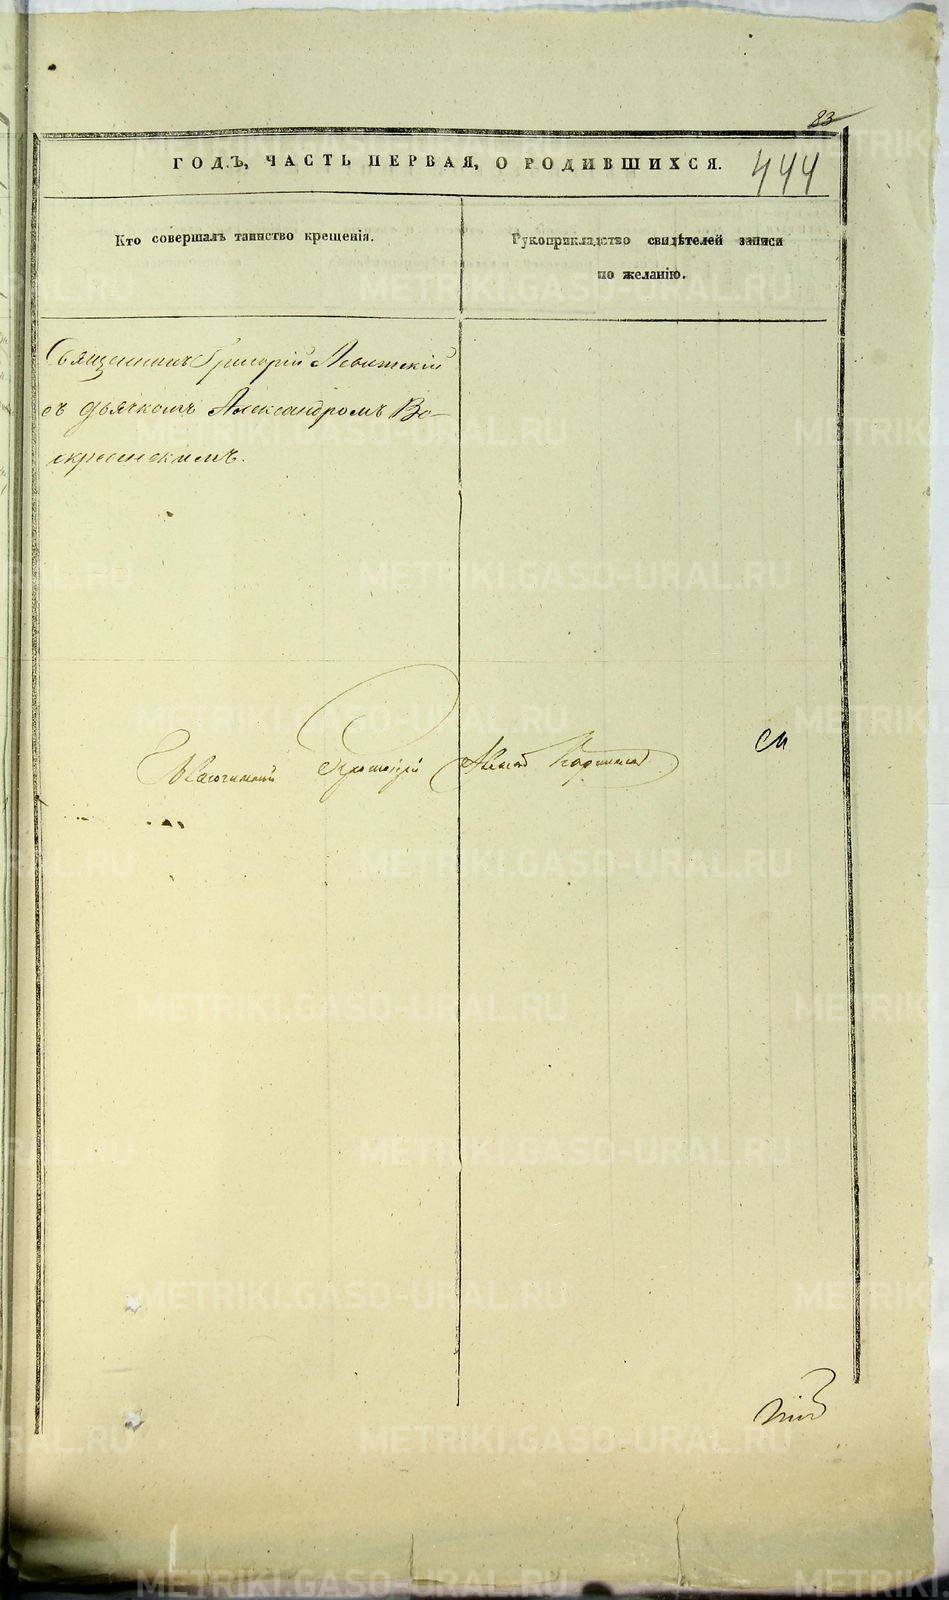 83
ГОДЪ, ЧАСТЬ ПЕРВАЯ, О РОДИВШИХСЯ.
444
Кто совершалъ таинство крещенія.
Рукоприкладство свидѣтелей записи
по желанію.
Священникъ Григорій Левитскій
съ дьячкомъ Александромъ Во-
скресенскимъ.
Благочинный Протоіерей
METRIKI.GASO-URAL.RU